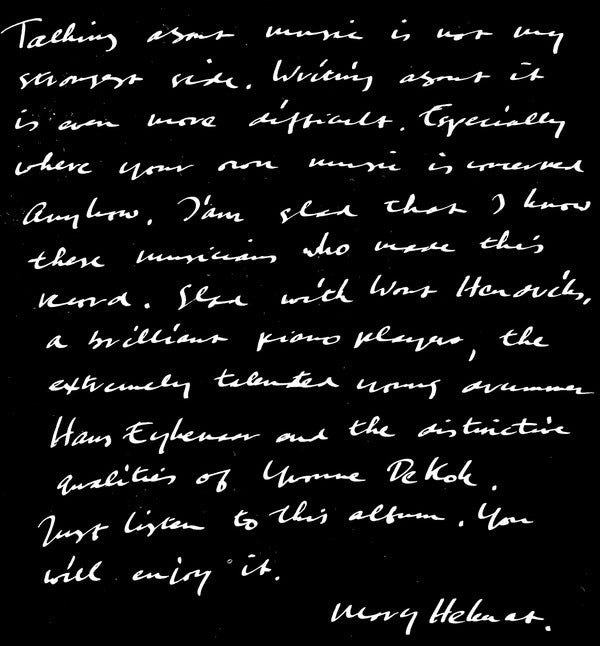 Talking about music is not my
strongest side. Writing about it
is even more difficult. Especially
where your own music is concerned
Anyhow. I'am glad that I know
these musicians who made this
record. Glad with Wout Hendriks,
a brilliant piano player, the
extremely talented young drummer
Hans Eykenaar and the distinctive
qualities of Yvonne DeKok.
Just listen to this album. You
will enjoy it.